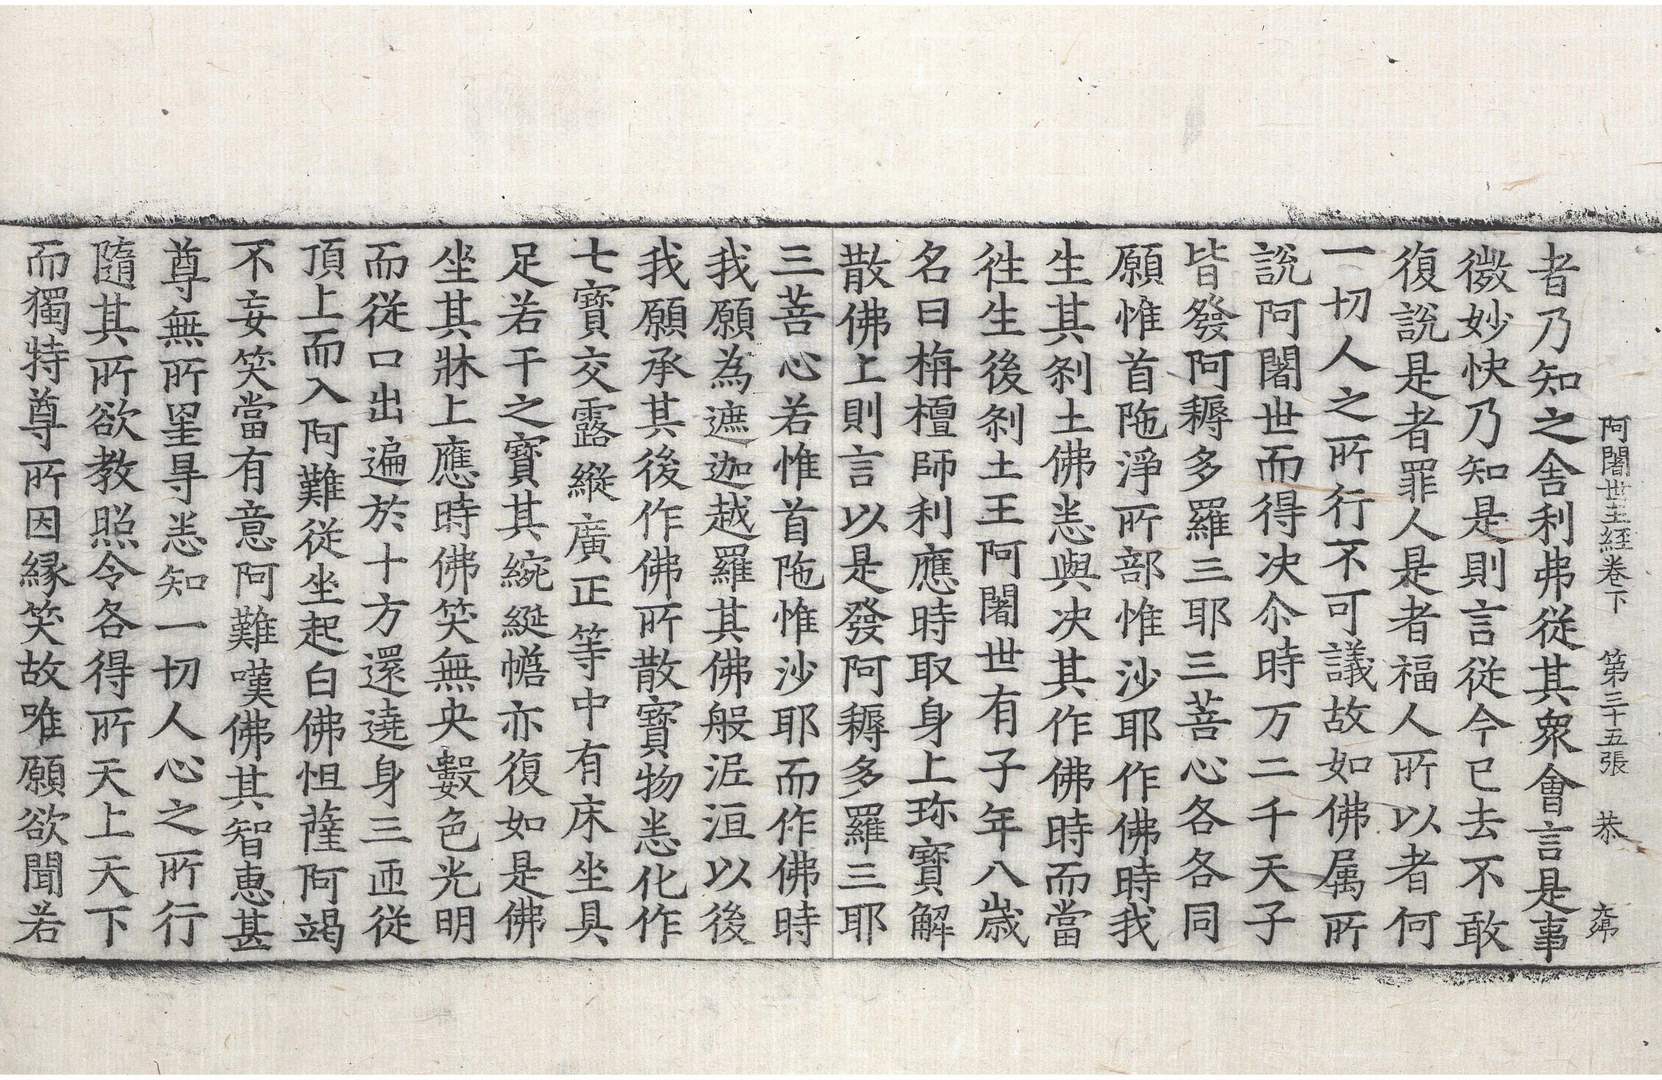 阿闍世王経卷下　第三十五張　恭
者乃知之舎利弗從其衆會言是事
微妙快乃知是則言從今已去不敢
復說是者罪人是者福人所以者何
一切人之所行不可議故如佛属所
說阿闍世而得决尒時万二千天子
皆發阿耨多羅三耶三菩心各各同
願惟首陁淨所部惟沙耶作佛時我
生其刹土佛悉與决其作佛時而當
徃生後刹土王阿闍世有子年八歳
名曰栴檀師利應時取身上珎寶解
散佛上則言以是發阿耨多羅三耶
三菩心若惟首陁惟沙耶而作佛時
我願為遮迦越羅其佛般泥洹以後
我願承其後作佛所散寳物悉化作
七寳交露縱廣正等中有床坐具
足若干之寳其綩綖幨亦復如是佛
坐其牀上應時佛笑無央數色光明
而從口出遍於十方還遶身三匝從
頂上而入阿難從坐起白佛怛薩阿竭
不妄笑當有意阿難嘆佛其智恵甚
尊無所罣㝵悉知一切人心之所行
隨其所欲教照令各得所天上天下
而獨特尊所因縁笑故唯願欲聞若